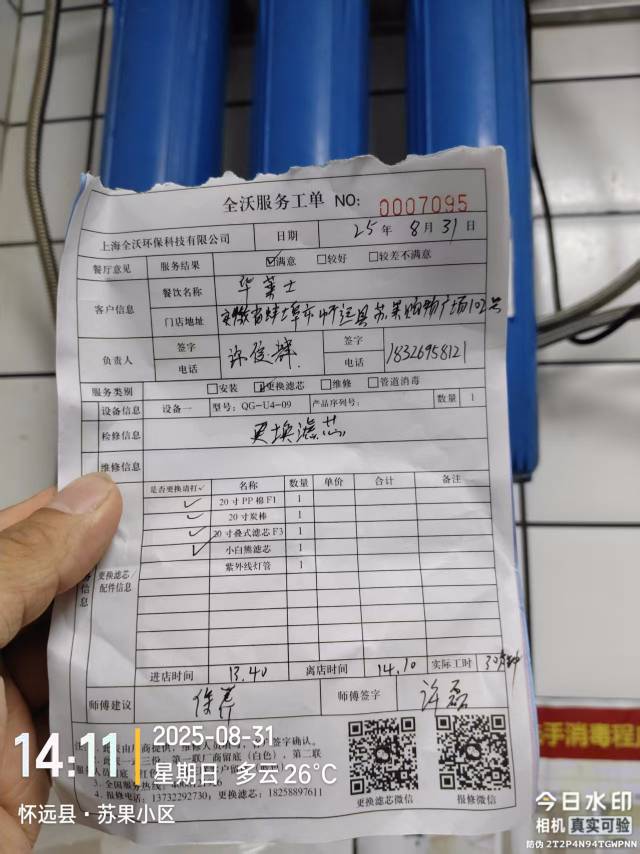 全沃服务工单 NO: 0007095
上海全沃环保科技有限公司 日期 25年8月31日
餐厅意见 服务结果 ☑满意 □较好 □较差不满意
客户信息 餐饮名称 华莱士
门店地址 安徽省蚌埠市怀远县苏果购物广场102号
负责人 签字 签字
电话 电话 18326958121
服务类别 □安装 ☑更换滤芯 □维修 □管道消毒
设备信息 设备一 型号: QG-U4-09 产品序列号: 数量 1
检修信息 更换滤芯
维修信息
是否更换请打✓ 名称 数量 单价 合计 备注
✓ 20寸PP棉F1 1
✓ 20寸炭棒 1
✓ 20寸叠式滤芯F3 1
✓ 小白熊滤芯 1
紫外线灯管 1
更换滤芯/
配件信息
进店时间 13.40 离店时间 14.10 实际工时 30分钟
师傅建议 师傅签字 许磊
更换滤芯微信 报修微信
4. 报修电话: 13732292730, 更换滤芯: 18258897611
14:11 2025-08-31
星期日 多云 26℃
怀远县·苏果小区
手消毒程
今日水印
相机 真实可验
防伪 2T2P4N94TGWPNN